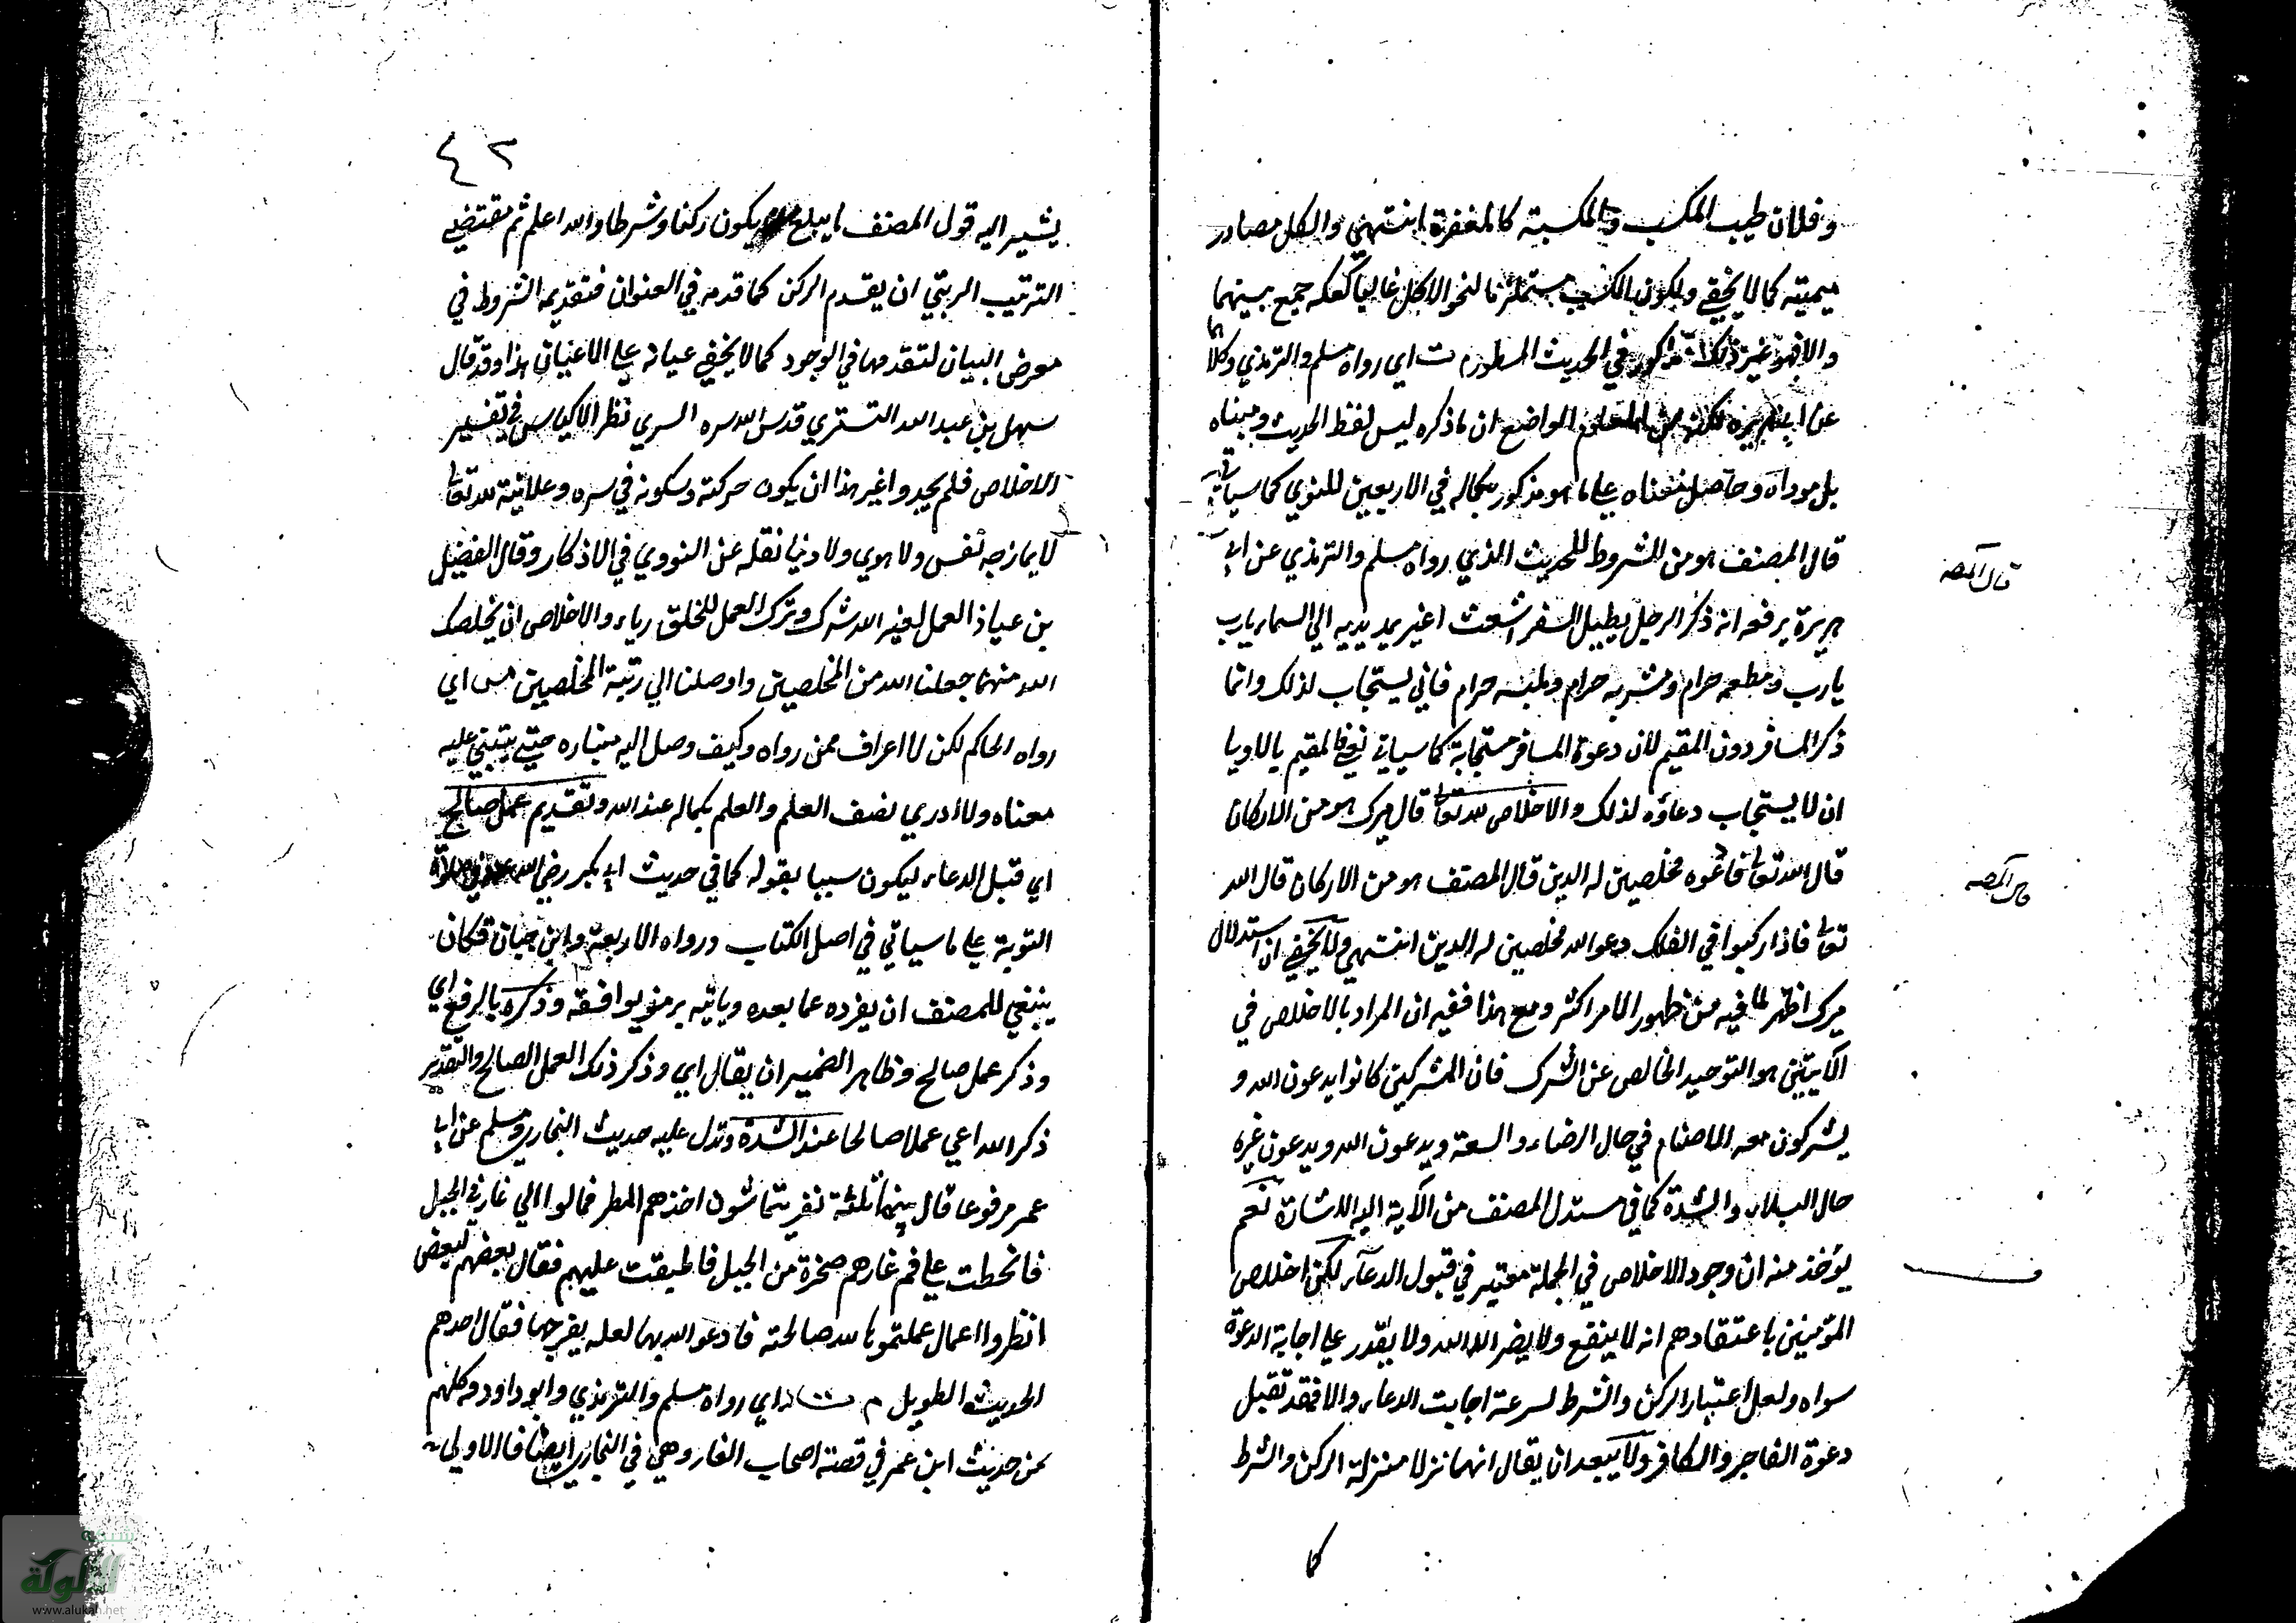 وفلان طيب المكسب والمكسبة كالمغفرة انتهى والكل مصادر
ميمية كما لا يخفى ولكون الكسب مستملزما لنحو الاكل غالبا كعكسه جمع بينهما
والا فهو غير ذلك مذكور في الحديث المسطور م ت اي رواه مسلم والترمذي وكلاهما
عن ابي هريرة لكن من المعلوم الواضح ان ما ذكره ليس لفظ الحديث ومبناه
بل موداه وحاصل معناه على ما هو مذكور بكماله في الاربعين للنووي كما سياتي
قال المصنف هو من الشروط للحديث الذي رواه مسلم والترمذي عن ابي
هريرة يرفعه انه ذكر الرجل يطيل السفر اشعث اغبر يمد يديه الي السماء يارب
يارب ومطعمه حرام ومشربه حرام وملبسه حرام فاني يستجاب لذلك وانما
ذكر المسافر دون المقيم لان دعوة المسافر مستجابة كما سياتي نفي المقيم بالاولى
ان لا يستجاب دعاؤه لذلك والاخلاص لله تعالى قال ميرك هو من الاركان
قال الله تعالى فادعوه مخلصين له الدين قال المصنف هو من الاركان قال الله
تعالى فاذا ركبوا في الفلك دعوا الله مخلصين له الدين انتهى ولا يخفى ان استدلال
ميرك اظهر لما فيه من ظهور الامر اكثر ومع هذا ففيه ان المراد بالاخلاص في
الآيتين هو التوحيد الخالص عن الشرك فان المشركين كانوا يدعون الله و
يشركون معه الاصنام في حال الرخاء والسعة ويدعون الله ويدعون غيره
حال البلاء والشدة كما في مستدل المصنف من الآية اليه الاشارة نعم
يؤخذ منه ان وجود الاخلاص في الجملة معتبر في قبول الدعاء لكن اخلاص
المؤمنين باعتقادهم انه لا ينفع ولا يضر الا الله ولا يقدر على اجابة الدعوة
سواه ولعل اعتبار الركن والشرط لسرعة اجابت الدعاء والا فقد تقبل
دعوة الفاجر والكافر ولا يبعد ان يقال انهما نزلا منزلة الركن والشرط
كما
قال المصـ
قال المصـ
٤٢
يشير اليه قول المصنف ما يبلغ يكون ركنا وشرطا والله اعلم ثم مقتضى
الترتيب الرتبي ان يقدم الركن كما قدمه في العنوان فتقديمه الشروط في
معرض البيان لتقدمها في الوجود كما لا يخفى عيانه على الاعيان هذا وقد قال
سهل بن عبد الله التستري قدس الله سره السري نظر الاكياس في تفسير
الاخلاص فلم يجدوا غير هذا ان يكون حركته وسكونه في سره وعلانيته لله تعالى
لا يمازجه نفس ولا هوي ولا دنيا نقله عن النووي في الاذكار وقال الفضيل
بن عياذ العمل لغير الله شرك وترك العمل للخلق رياء والاخلاص ان يخلصك
الله منهما جعلنا الله من المخلصين واوصلنا الي رتبة المخلصين مس اي
رواه الحاكم لكن لا اعراف ممن رواه وكيف وصل اليه مبناره حتى يبتني عليه
معناه ولا ادري نصف العلم والعلم بكماله عند الله وتقديم عمل صالح
اي قبل الدعاء ليكون سببا بقوله كما في حديث ابي بكر رضي الله عنه في صلاة
التوبة على ما سياتي في اصل الكتاب ورواه الاربعة وابن حبان فكان
ينبغي للمصنف ان يفرده عما بعده وياتيه برمز يوافقه وذكره بالرفع اي
وذكر عمل صالح وظاهر الضمير ان يقال اي وذكر ذلك العمل الصالح والتقدير
ذكر الداعي عملا صالحا عند الشدة وتدل عليه حديث البخاري ومسلم عن ابن
عمر مرفوعا قال بينما ثلثة نفر يتماشون اخذهم المطر فمالوا الي غار في الجبل
فانحطت على فم غارهم صخرة من الجبل فاطبقت عليهم فقال بعضهم لبعض
انظروا اعمال عملتموها لله صالحة فادعوا الله بها لعله يفرجها فقال احدهم
الحديث الطويل م ت د اي رواه مسلم والترمذي وابو داود وكلهم
من حديث ابن عمر في قصة اصحاب الغار وهي في البخاري ايضا فالاولى
شبكة
الألوكة
www.alukah.net